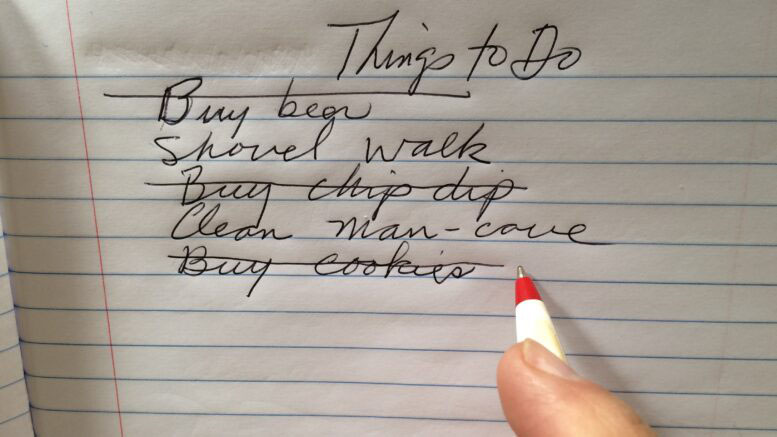 Things to Do
Buy beer
Shovel walk
Buy chip dip
Clean man-cave
Buy cookies